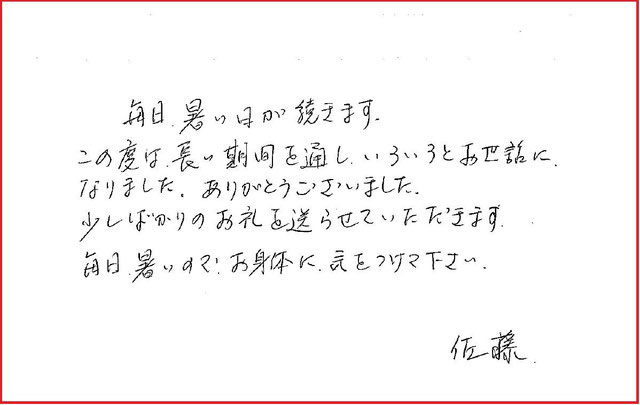 毎日、暑い日が続きます。
この度は、長い期間を通し、いろいろとお世話に、
なりました。ありがとうございました。
少しばかりのお礼を送らせていただきます。
毎日、暑いので、お身体に、気をつけて下さい。
佐藤